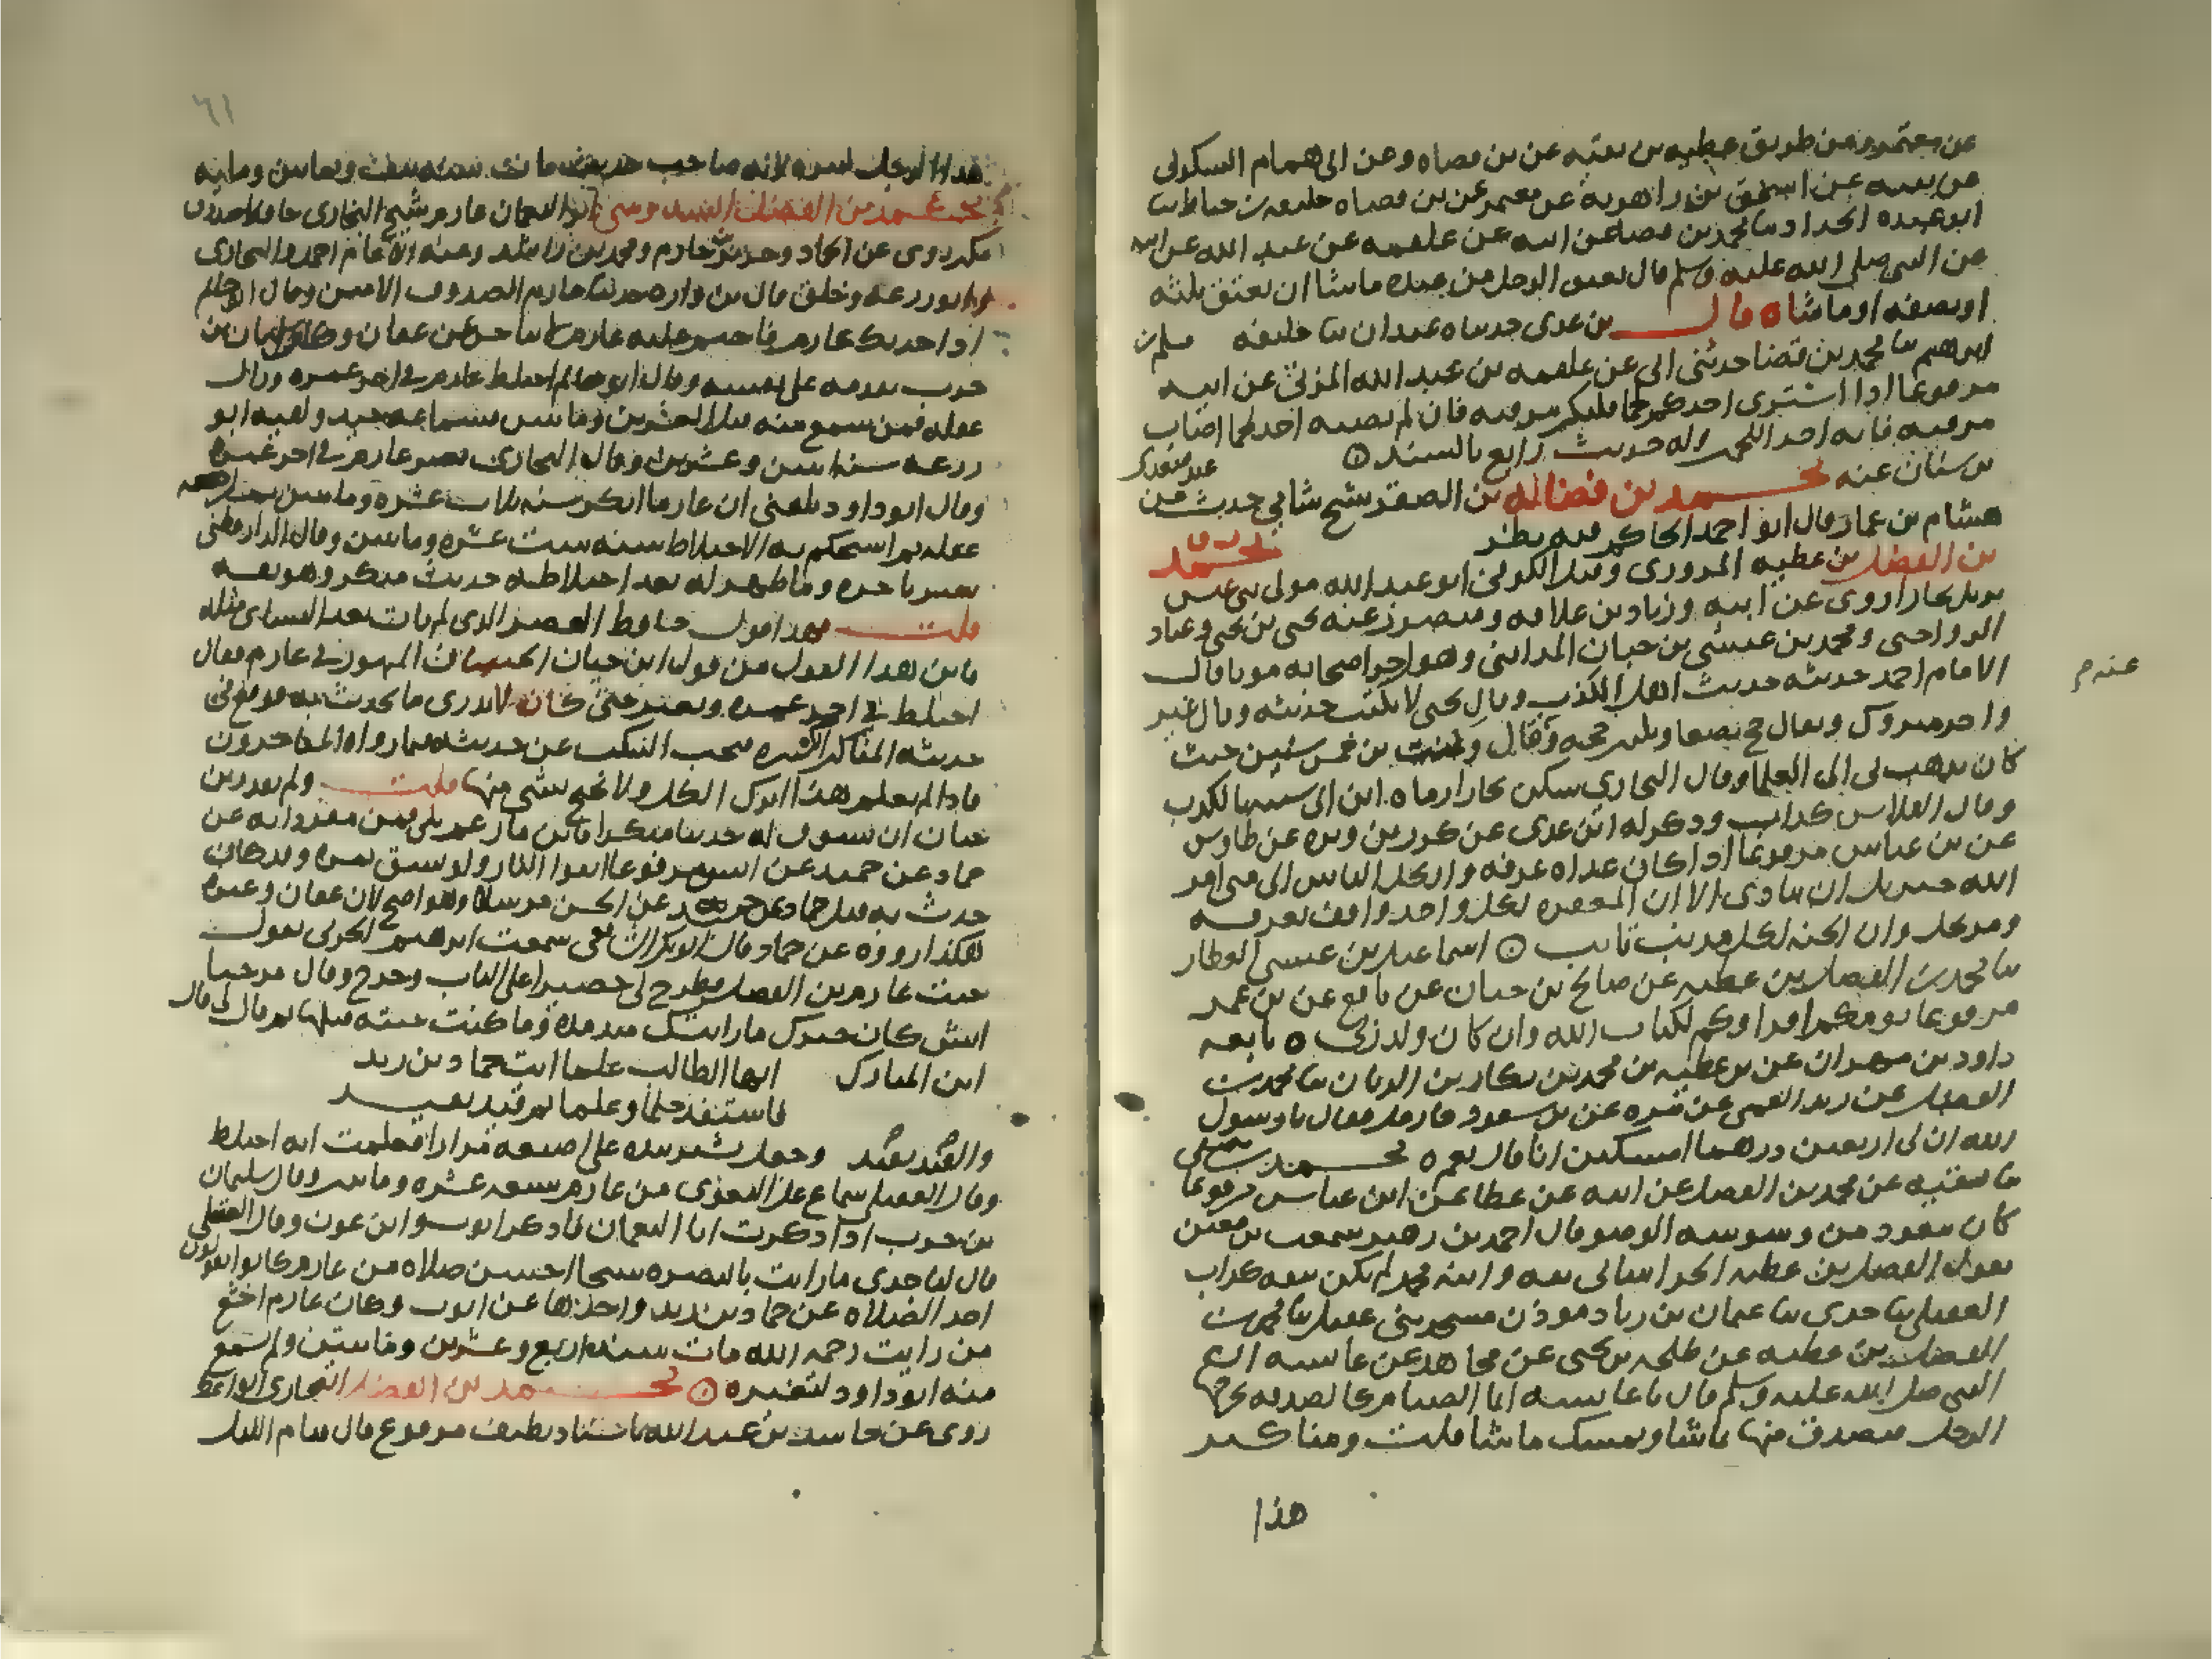 عن معتمر ومن طريق عطيه بن بقيه عن بن فضاه وعن ابي همام السكوني
عن بقيه عن اسحق بن راهويه عن معتمر عن بن فضاه خليفه بن خياط ثنا
ابو عبيده الحداد ثنا محمد بن فضا عن ابيه عن علقمه عن عبد الله عن ابيه
عن النبي صلى الله عليه وسلم قال يعتق الرجل من عبده ما شا ان يعتق ثلثه
او نصفه او ما شاه قال بن عدي حدثناه عبدان ثنا خليفه مسلم بن
ابرهيم ثنا محمد بن فضا حدثني ابي عن علقمه بن عبد الله المزني عن ابيه
مرفوعا اذا اشترى احدكم لحما فليكثر مرقته فان لم يصبه احد لحما اصاب
مرقته فانه احد اللحمين وله حديث رابع بالسند
بن سنان عنه محمد بن فضاله بن الصقر شيخ شامي حدث عن
هشام بن عمار قال ابو احمد الحاكم فيه نظر محمد ت ق
بن الفضل بن عطيه المروزي وقيل الكوفي ابو عبد الله مولى بني عبس
نزيل بخارا روى عن ابيه وزياد بن علاقه ومنصور عنه يحيى بن يحيى وعباد
الرواجني ومحمد بن عيسى بن حبان المدايني وهو اخر اصحابه موتا قال
الامام احمد حديثه حديث اهل الكذب وقال يحيى لا يكتب حديثه وقال غير
واحد متروك ويقال حج بضعا وثلثين حجه وقال وكنت بن خمس سنين حيث
كان يذهب بي ابي الى العلما وقال البخاري سكن بخارا رماه ابن ابي شيبه بالكذب
وقال الفلاس كذاب وذكر له ابن عدي عن كرز بن وبره عن طاوس
عن بن عباس مرفوعا اذا كان غداه عرفه وارتحل الناس الى منى امر
الله جبريل ان ينادي الا ان المغفره لكل واحد وافق بعرفه
ومرتحل وان الجنه لكل مذنب تائب اسماعيل بن عيسى العطار
ثنا محمد بن الفضل بن عطيه عن صالح بن حيان عن نافع عن بن عمر
مرفوعا يؤمكم اقراوكم لكتاب الله وان كان ولد زنى تابعه
داود بن مهران عن بن عطيه بن محمد بن بكار بن الريان ثنا محمد بن
الفضل عن زيد العمي عن مره عن بن مسعود قال رجل يا رسول
الله ان لي اربعين درهما امسكين انا قال نعم محمد بن مصفى
ثنا بقيه عن محمد بن الفضل عن ابيه عن عطا عن ابن عباس مرفوعا
كان يتعوذ من وسوسه الوضو قال احمد بن زهير سمعت بن معين
يقول الفضل بن عطيه الخراساني ثقه وابنه محمد لم يكن ثقه كذاب
العقيلي ثنا جدي ثنا عثمان بن زياد موذن مسجد بني عقيل ثنا محمد بن
الفضل بن عطيه عن طلحه بن يحيى عن مجاهد عن عايشه ان
النبي صلى الله عليه وسلم قال يا عايشه انما الصيام كالصدقه يخرجها
الرجل فيتصدق منها ما شا ويمسك ما شا قلت ومناكير
عنه م
هذا
٦١
هذا الرجل كثيره لانه صاحب حديث مات سنه ثمانين ومايه
محمد بن الفضل السدوسي ابو النعمان عارم شيخ البخاري حافظ صدوق
مكثر روى عن الحمادين وجرير بن حازم ومحمد بن راشد وعنه الامام احمد والبخاري
وابو زرعه وخلق قال بن واره حدثنا عارم الصدوق الامين وقال ابو حاتم
اذا حدثك عارم فاختم عليه عارم لا يتاخر عن عفان وكان سليمان بن
حرب يقدمه على نفسه وقال ابو حاتم اختلط عارم في اخر عمره وزال
عقله فمن سمع منه قبل العشرين ومايتين فسماعه جيد ولقيه ابو
زرعه سنه اثنين وعشرين وقال البخاري تغير عارم في اخر عمره
وقال ابو داود بلغني ان عارما انكر سنه ثلاث عشره ومايتين ثم راجعه
عقله ثم استحكم به الاختلاط سنه ست عشره ومايتين وقال الدارقطني
تغير باخره وما ظهر له بعد اختلاطه حديث منكر وهو ثقه
قلت فهذا قول حافظ العصر الذي لم يات بعد النسائي مثله
فاين هذا القول من قول ابن حبان الخساف المتهور في عارم فقال
اختلط في اخر عمره وتغير حتى كان لا يدري ما يحدث به فوقع في
حديثه المناكير الكثيره فيجب التنكب عن حديثه فيما رواه المتاخرون
فاذا لم يعلم هذا من هذا ترك الكل ولا يحتج بشي منها قلت ولم يقدر بن
حبان ان يسوق له حديثا منكرا فاين ما زعم بلى فمن مفرداته عن
حماد عن حميد عن انس مرفوعا اتقوا النار ولو بشق تمره وقد كان
حدث به قبل عن حماد عن حميد عن الحسن مرسلا وهو اصح لان عفان وغيره
هكذا رووه عن حماد قال ابو بكر الشافعي سمعت ابرهيم الحربي يقول
جيت عارم بن الفضل فطرح لي حصيرا على الباب وخرج وقال مرحبا
ايش كان خبرك ما رايتك منذ مده وما كنت جيته قبلها ثم قال لي قال
ابن المبارك ايها الطالب علما ايت حماد بن زيد
فاستفد حلما وعلما ثم قيد بقيد
والقيد بقيد وجعل يشير بيده على اصبعه مرارا فعلمت انه اختلط
وقال العقيلي سماع علي البغوي من عارم سنه سبع عشره ومايتين وقال سليمان
بن حرب اذا ذكرت ابا النعمان فاذكر ايوب وابن عون وقال العقيلي
قال لنا جدي ما رايت بالبصره شيخا احسن صلاه من عارم كانوا يقولون
اخذ الصلاه عن حماد بن زيد واخذها عن ايوب وكان عارم اخشع
من رايت رحمه الله مات سنه اربع وعشرين ومايتين ولم يسمع
منه ابو داود لتغيره محمد بن الفضل البخاري الواعظ
روى عن حاشد بن عبد الله باسناد نظيف مرفوع قال قيام الليل